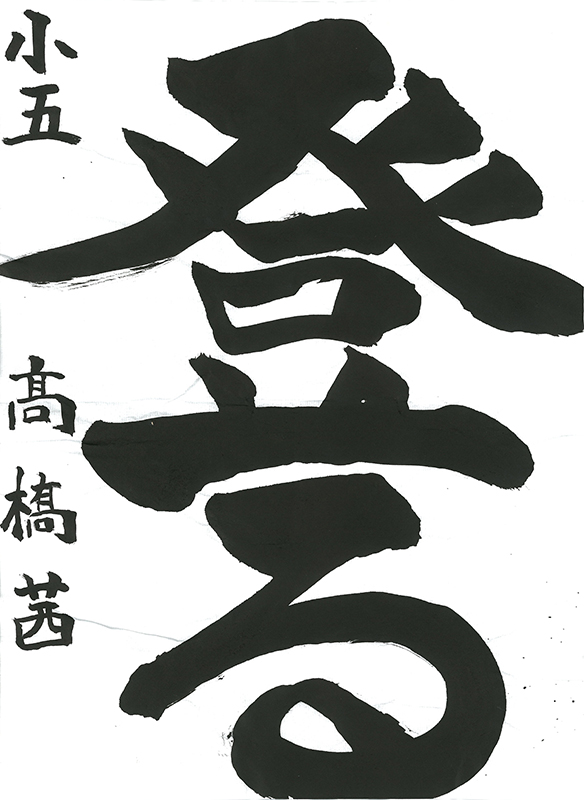 登る
小五 髙橋茜